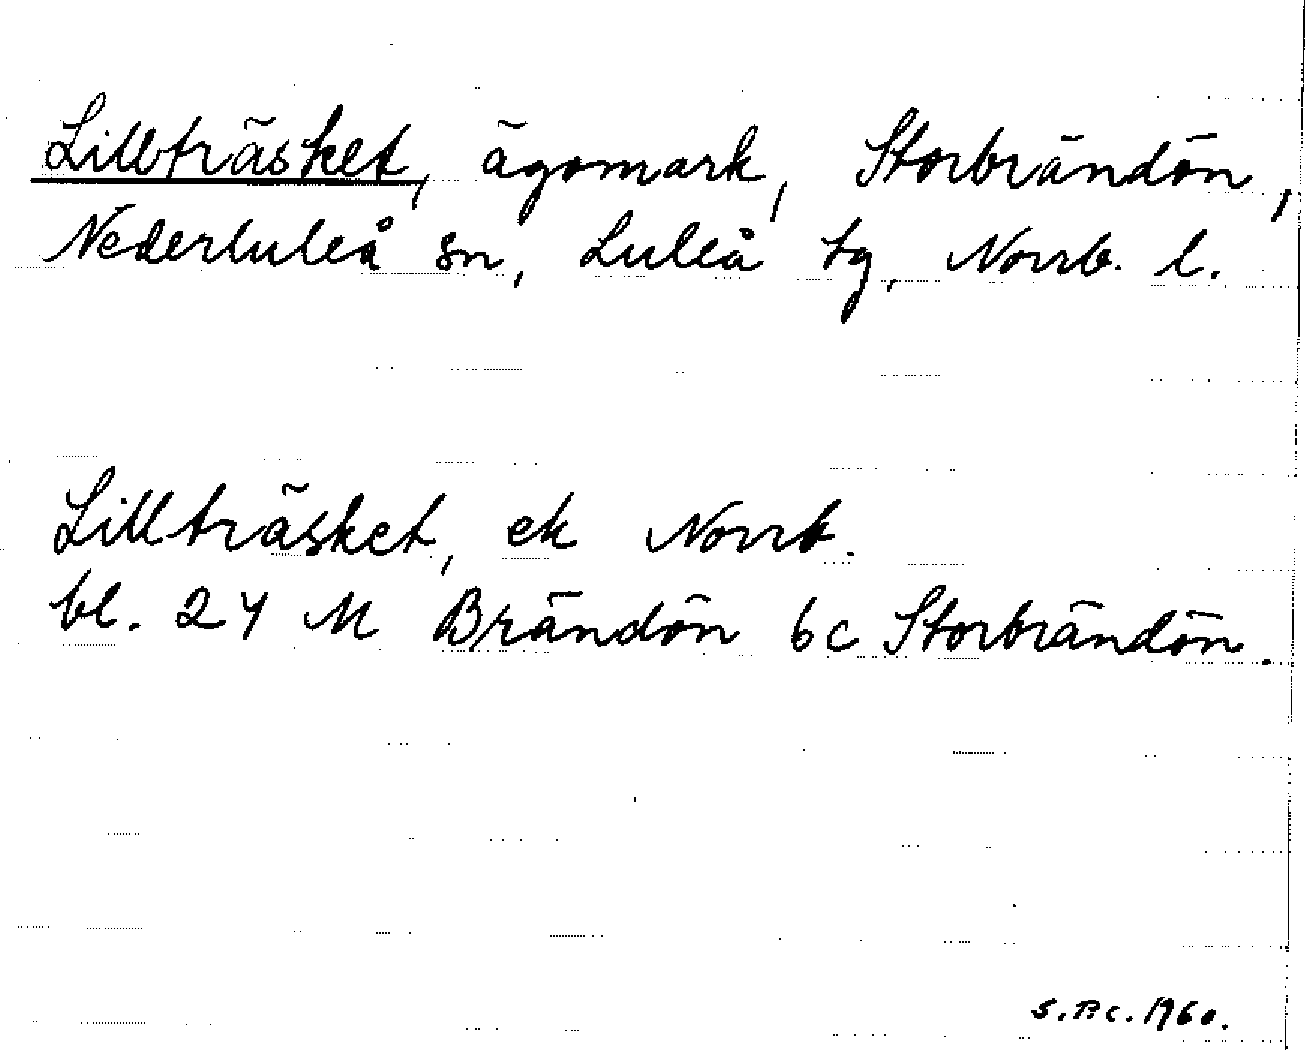 Lillträsket, ägomark, Storbrändön,
Nederluleå sn, Luleå tg, Norrb. l.
Lillträsket, ek Norrb.
bl. 24 M Brändön 6c Storbrändön.
S.B.C. 1960.